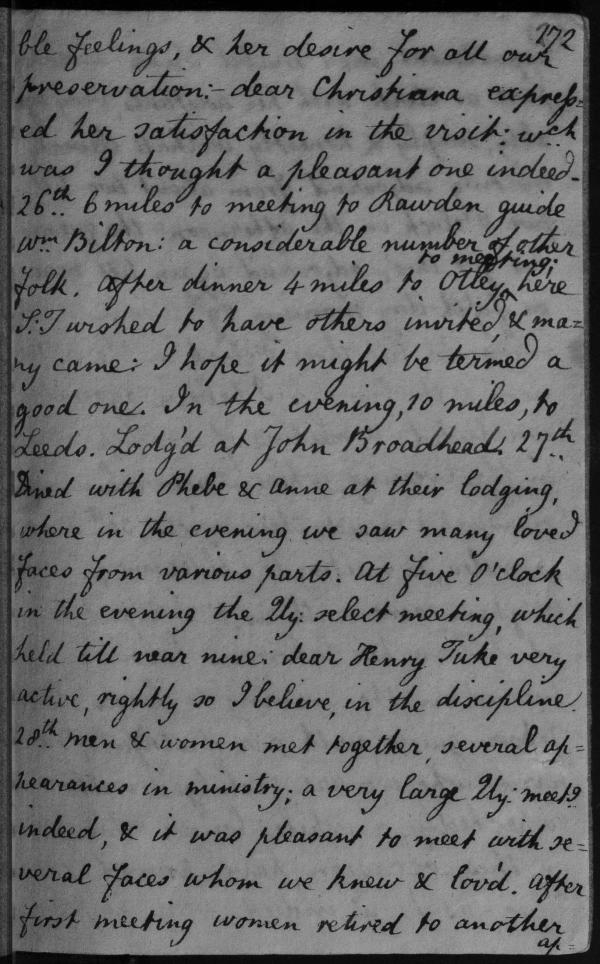 272
ble feelings, & her desire for all our
preservation:- dear Christiana express=
ed her satisfaction in the visit: wch
was I thought a pleasant one indeed-
26th.. 6 miles to meeting to Rawden guide
Wm Bilton: a considerable number of other
to meeting:
folk. After dinner 4 miles to Otley, ^ here
S:T wished to have others invited, & ma=
ny came: I hope it might be termed a
good one. In the evening, 10 miles, to
Leeds. Lodg'd at John Broadheads. 27th..
Dined with Phebe & Anne at their lodging,
where in the evening we saw many loved
faces from various parts. At five O'clock
in the evening the Qly: select meeting, which
held till near nine: dear Henry Tuke very
active, rightly so I believe, in the discipline.
28th.. men & women met together, several ap=
pearances in ministry; a very large Qly: meetg
indeed, & it was pleasant to meet with se=
veral faces whom we knew & lov'd. After
first meeting women retired to another
ap=